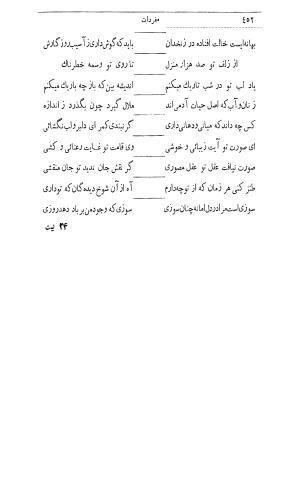 ۴۵۲ مفردات
بهانه ایست خالت افتاده در زنخدان باید که گوش داری ز آسیب روزگارش
از زلف تو صد هزار منزل تا روی تو وسمه خطرناک
یاد لب تو در شب تاریک میکنم اندیشه بین که باز چه باریک میکنم
ز نان و آب که اصل حیات آدمی اند ملال گیرد چون بگذرد ز اندازه
کس چه داند که میانی و دهانی داری گر نبندی کمر ای دلبر و لب نگشائی
ای صورت تو آیت زیبائی و خوشی وی قامت تو غایت رعنائی و کشی
صورت نیافت عقل تو عقل مصوری گر نقش جان ندید تو جان منقشی
طنز کنی هر زمان که از توچه دارم آه از آن شوخ دیدگان که تو داری
سوزی است مرا در دل اما نه چنان سوزی سوزی که وجود من بر باد دهد روزی
۲۴ بیت